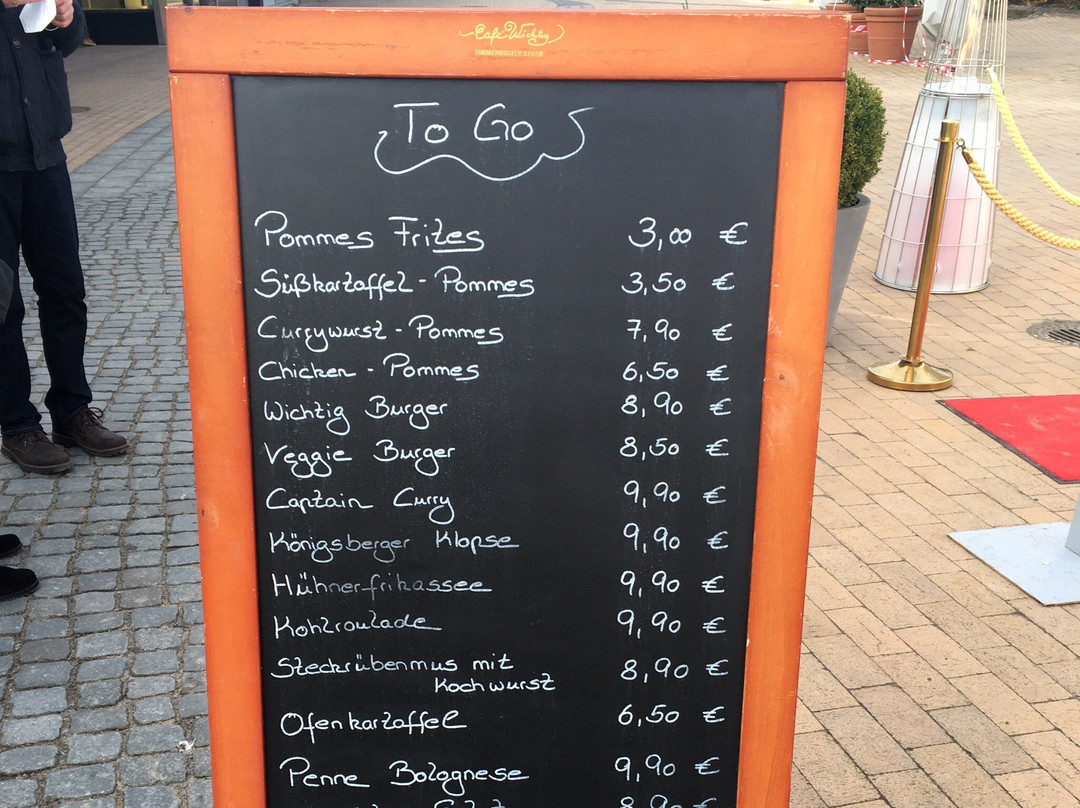 Café Wichtig
TIMMENDORFER STRAND
To Go
Pommes Frites 3,00 €
Süßkartoffel - Pommes 3,50 €
Currywurst - Pommes 7,90 €
Chicken - Pommes 6,50 €
Wichtig Burger 8,90 €
Veggie Burger 8,50 €
Captain Curry 9,90 €
Königsberger Klopse 9,90 €
Hühnerfrikassee 9,90 €
Kohlroulade 9,90 €
Steckrübenmus mit
Kochwurst 8,90 €
Ofenkartoffel 6,50 €
Penne Bolognese 9,90 €
8,90 €